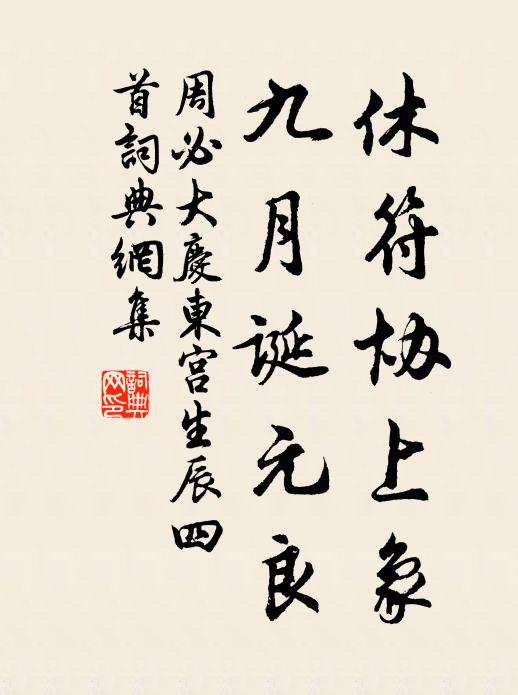 休符协上象
九月誕元良
周必大慶東宮生辰四
首詞典網集
詞典
网印